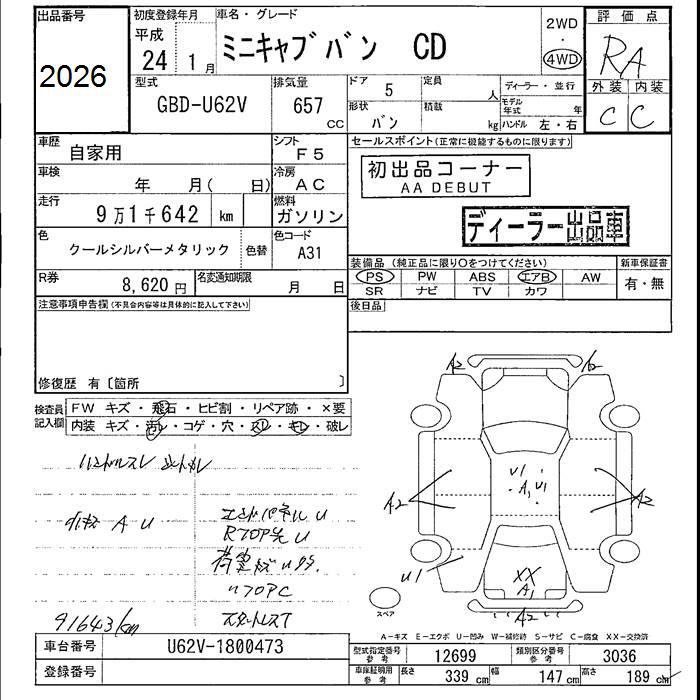 出品番号
2026
初度登録年月
平成
24 1月
車名・グレード
ミニキャブバン CD
2WD
・
4WD
評価点
RA
外装 内装
C C
型式
GBD-U62V
排気量
657 CC
ドア 5
定員 人
ディーラー・並行
モデル年式 年
形状 バン
積載 kg
ハンドル 左・右
車歴
自家用
シフト
F5
セールスポイント(正常に機能するものに限ります)
初出品コーナー
AA DEBUT
ディーラー出品車
車検
年 月( 日)
冷房
AC
走行
9万1千642 km
燃料
ガソリン
色
クールシルバーメタリック
色替
色コード
A31
装備品(純正品に限り○をつけてください)
新車保証書
PS PW ABS エアB AW
有・無
SR ナビ TV カワ
R券
8,620円
名変通知期限
月 日
後日品
注意事項申告欄(不具合内容等は具体的に記入して下さい)
修復歴 有〔箇所 〕
検査員記入欄
FW キズ・飛石・ヒビ割・リペア跡・×要
内装 キズ・汚レ・コゲ・穴・スレ・キレ・破レ
ハンドルスレ
A U
エンドパネルU
91643km
スタットレスT
A2
A2
U1
A,U1
A2
A2
U1
XX
A1
A2
スペア
A-キズ E-エクボ U-凹み W-補修跡 S-サビ C-腐食 XX-交換済
車台番号
U62V-1800473
登録番号
型式指定番号 参考
12699
類別区分番号 参考
3036
車庫証明用 参考
長さ 339 cm
幅 147 cm
高さ 189 cm